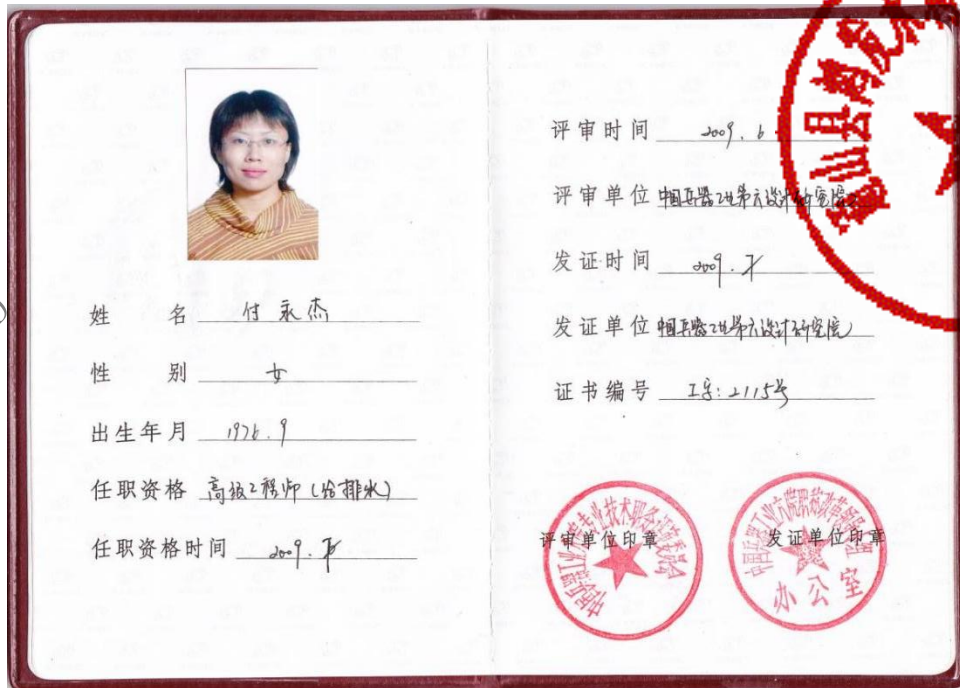 姓 名 付永杰
性 别 女
出生年月 1976.9
任职资格 高级工程师(给排水)
任职资格时间 2009.
评审时间 2009.6
评审单位 中国兵器工业第六设计研究院
发证时间 2009.
发证单位 中国兵器工业第六设计研究院
证书编号 工字:2115号
评审单位印章
发证单位印章
办公室